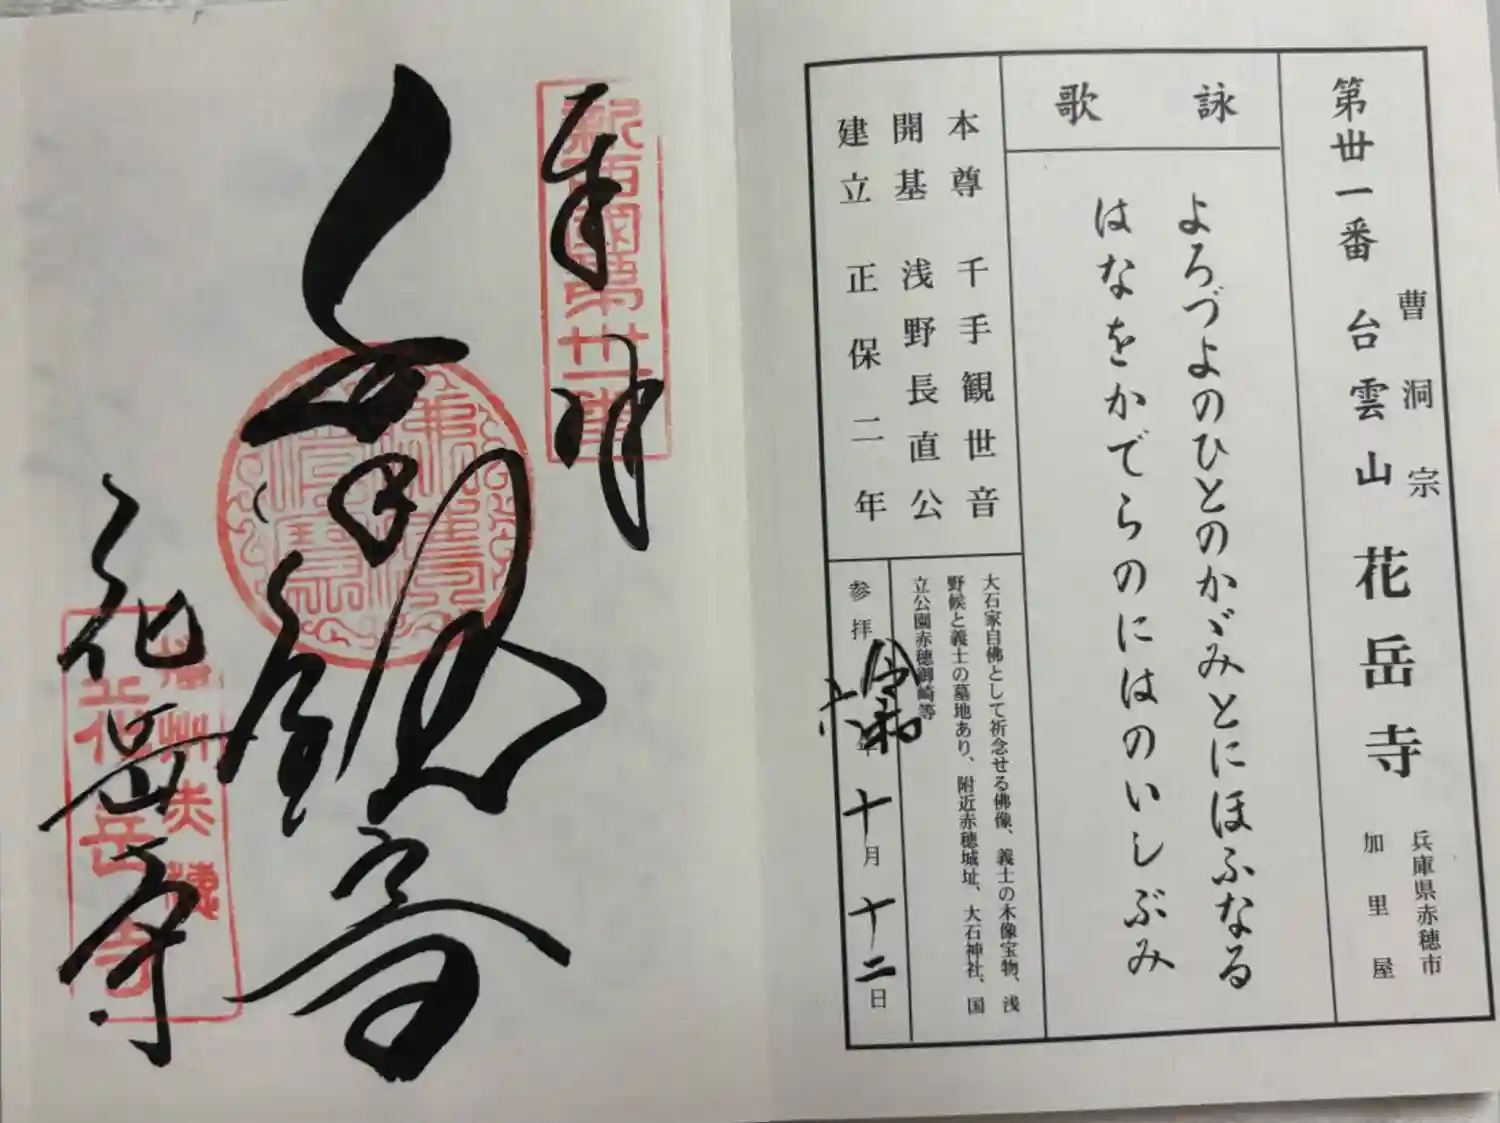 第丗一番 台雲山 花岳寺
曹洞宗
兵庫県赤穂市
加里屋
詠歌
よろづよのひとのかゞみとにほふなる
はなをかでらのにはのいしぶみ
本尊 千手観世音
開基 浅野長直公
建立 正保二年
大石家自佛として祈念せる佛像、義士の木像宝物、浅
野候と義士の墓地あり、附近赤穂城址、大石神社、国
立公園赤穂御崎等
参拝 令和六年十月十二日
奉拝
新西國第丗一番
千手観音
花岳寺
播州赤穂
花岳寺